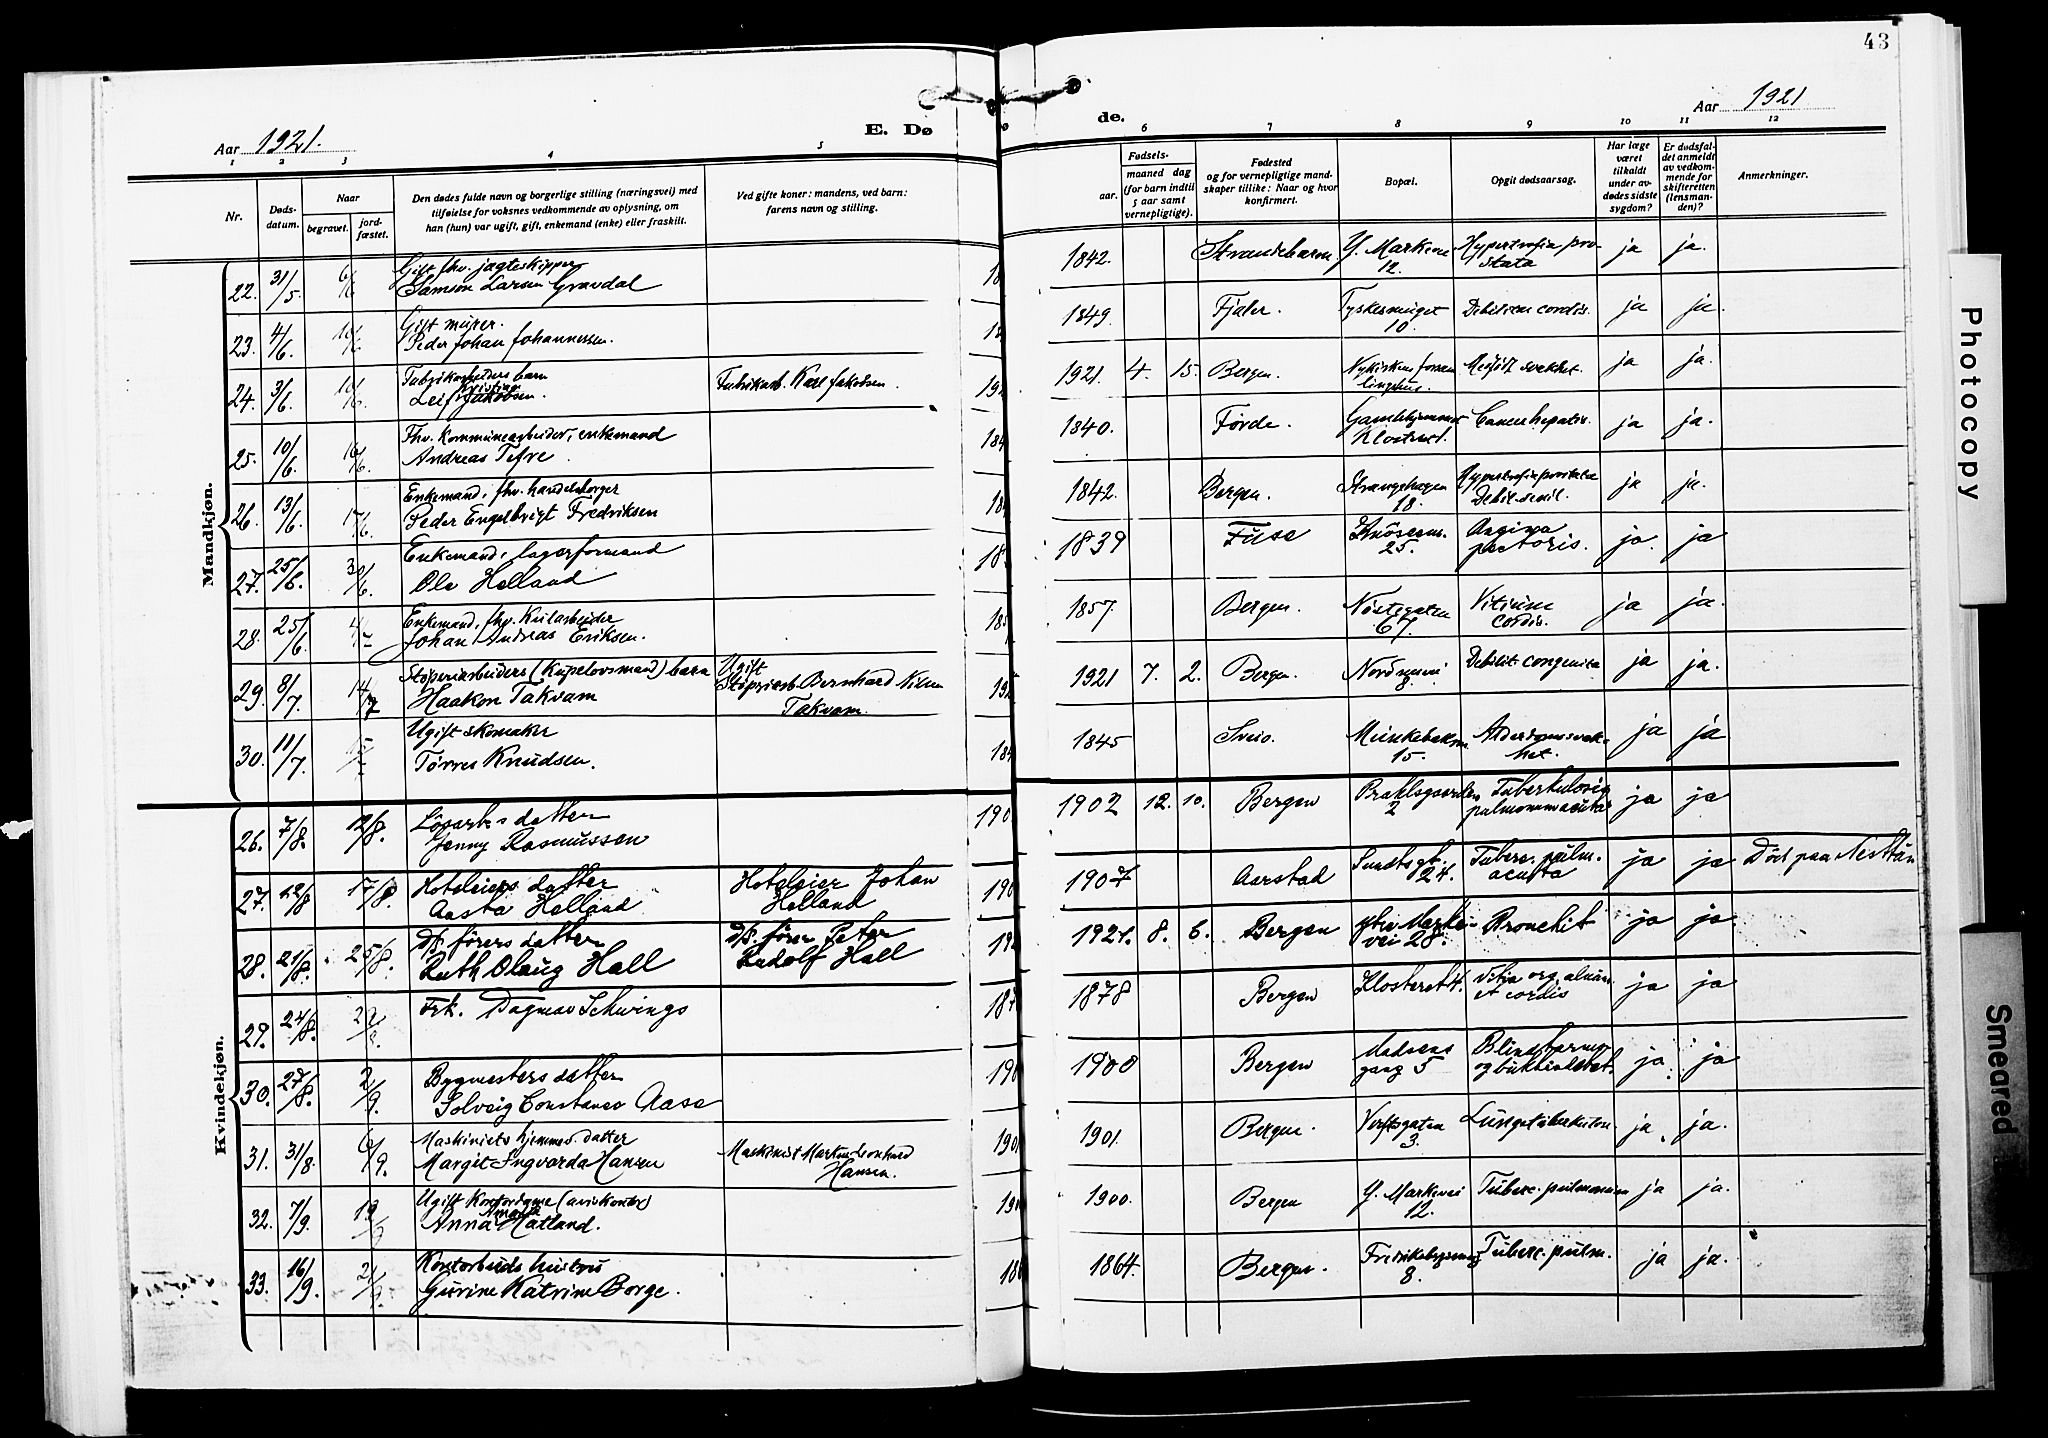 43
Aar 1921.
E. Dø
de.
Aar 1921
1 2 3 4 5
6 7 8 9 10 11 12
Nr.
Døds-
datum.
Naar
begravet.
jord-
fæstet.
Den dødes fulde navn og borgerlige stilling (næringsvei) med
tilføielse for voksnes vedkommende av oplysning, om
han (hun) var ugift, gift, enkemand (enke) eller fraskilt.
Ved gifte koner: mandens, ved barn:
farens navn og stilling.
Fødsels-
aar.
maaned dag
(for barn indtil
5 aar samt
vernepligtige).
Fødested
og for vernepligtige mand-
skaper tillike: Naar og hvor
konfirmert.
Bopæl.
Opgit dødsaarsag.
Har læge
været
tilkaldt
under av-
dødes sidste
sygdom?
Er dødsfal-
det anmeldt
av vedkom-
mende for
skifteretten
(lensman-
den)?
Anmerkninger.
Mandkjøn.
22. 31/5. 6/6 Gift fhv. jagteskipper
Samson Larsen Gravdal
1842. Strandebarm. Y. Markevei
12. Hypertrofia pro-
stata ja ja.
23. 4/6. 10/6 Gift murer.
Peder Johan Johannessen.
1849. Fjaler. Tyskesmuget
10. cordis. ja ja.
24. 3/6. 10/6. Fabrikarbeiders barn
Leif Kristian Jakobsen. Fabrikarb. Karl Jakobsen.
1921. 4. 15. Bergen. Medf. svakhet. ja ja.
25. 10/6. 16/6. Fhv. kommunearbeider, enkemand
Andreas Tefre.
1840. Førde. Gamlehjemmet
Klostret. Cancer hepatis. ja ja.
26. 13/6. 17/6. Enkemand, fhv. handelsborger
Peder Engelbrigt Fredriksen
1842. Bergen. Strangehagen
18. Hypertrofia prostatae
Debil. senil. ja ja.
27. 25/6. 30/6. Enkemand, lagerformand
Ole Helland
1839 Fuse Knøsesm.
25. Angina
pectoris. ja. ja
28. 25/6. Enkemand, fhv. Kularbeider
Johan Andreas Eriksen.
1857. Bergen. Nøstegaten
67. Vitium
cordis. ja ja.
29. 8/7. 14/7 Støperiarbeiders (Kupelovsmand) barn
Haakon Takvam Ugift
Støperiarb. Bernhard Nilsen
Takvam.
1921 7. 2. Bergen. Nordnesvei
8. Debilit. congenita ja ja.
30. 11/7. Ugift skomaker
Tørres Knudsen.
1845 Sveio. Munkebekm.
15. Alderdomssvak-
het. ja ja
Kvindekjøn.
26. 7/8. 12/8. Løsarb.s datter
Jenny Rasmussen
1902 12. 10. Bergen Prahlsgaarden
2 Tuberkulosis
pulmonum acuta ja ja
27. 12/8 17/8. Hoteleiers datter
Aasta Helland Hoteleier Johan
Helland
1907 Aarstad Sundtsgt.
24. Tuberc. pulm.
acuta ja ja Død paa Nesttun
28. 21/8. 25/8. D/s. førers datter
Ruth Olaug Hall D/s. fører Peter
Rudolf Hall
1921. 8. 6. Bergen Ytre Marke-
vei 28. Bronchit ja ja.
29. 24/8. Frk. Dagmar Schwings
1878 Bergen Klosteret 4. Vitia org.
et cordis ja ja
30. 27/8. 2/9. Bygmesters datter
Solveig Constance Aase
1900 Bergen Madsens
gang 5 Blindtarms
og bukhindebet. ja. ja
31. 31/8. 6/9. Maskinists hjemmev. datter
Margit Ingvarda Hansen Maskinist Martin Leonhard
Hansen.
1901. Bergen. Verftsgaten
3. Lungetuberkulose. ja. ja.
32. 7/9. Ugift Kontordame (aviskontor)
Anna Amanda Hatland.
1900. Bergen Y. Markevei
12. Tuberc. pulmonum ja ja.
33. 16/9. 21/9. Kontorbuds hustru
Gurine Katrine Borge.
1864. Bergen.
8. Tuberc. pulm. ja ja.
Photocopy
Smeared